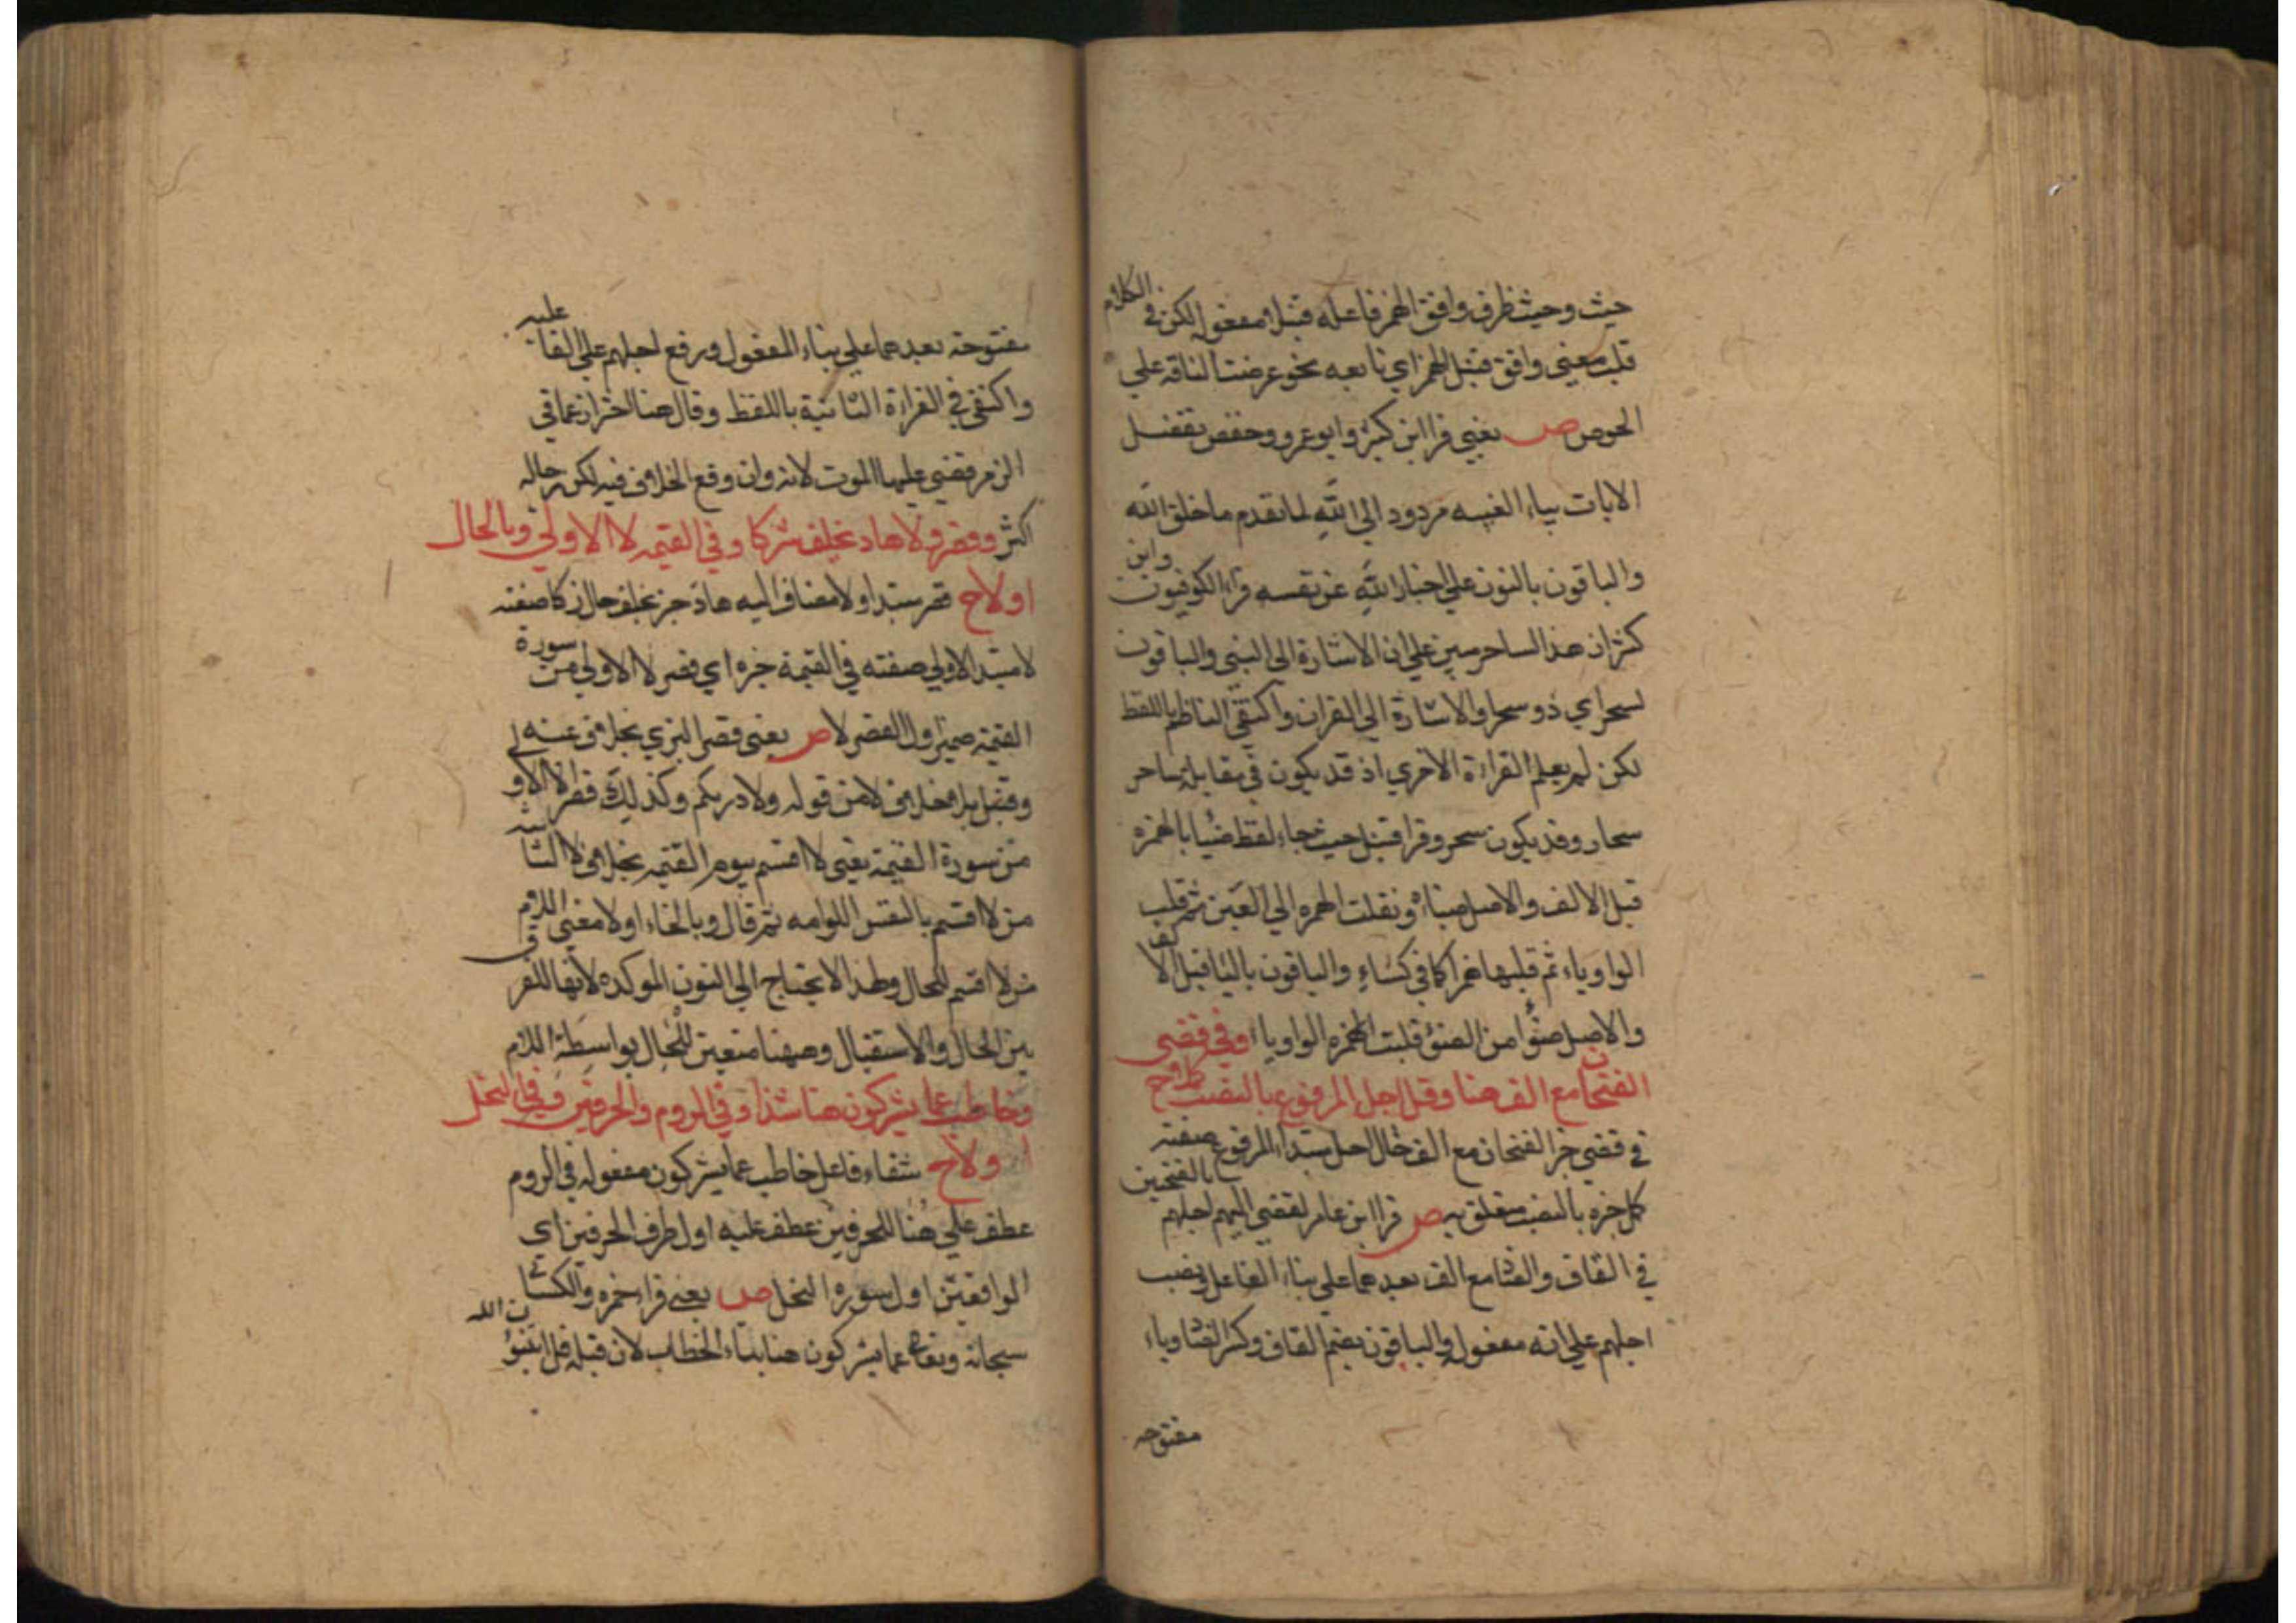 حيث وحيث ظرف وافق الهمز فاعله قنبلا مفعوله لكن في الكلام
قلب معني وافق قنبل الهمز اي تابعه نحو عرضت الناقة علي
الحوض ص يعني قرا ابن كثير وابو عمرو وحفص يفصل
الايات بياء الغيبه مردود الي الله لما تقدم ما خلق الله
والباقون بالنون علي اخبار الله عن نفسه قراء الكوفيون وابن
كثير ان هذا لساحر مبين علي ان الاشارة الي النبي والباقون
لسحر اي ذو سحر او الاشارة الي القران واكتفي الناظم باللفظ
لكن لم يعلم القراءة الاخري اذ قد يكون في مقابلة ساحر
سحار وقد يكون سحر وقرا قنبل حيث جاء لفظ ضئا بالهمزه
قبل الالف والاصل ضياء ونقلت الهمزه الي العين ثم قلب
الواو ياء ثم قلبها همزا كما في كساء والباقون باليا قبل الالف
والاصل ضوا من الضوء قلبت الهمزه الواو ياء وفي قضي
الفتحان مع الف هنا وقل اجل المرفوع بالنصب كملا ح
في قضي خبر الفتحان مع الف حال اجل مبتدا المرفوع صفته
كمل خبره بالنصب متعلق به ص قرا ابن عامر لقضي اليهم اجلهم بالفتحين
في القاف والضاد مع الف بعدهما علي بناء الفاعل ونصب
اجلهم علي انه مفعوله والباقون بضم القاف وكسر الضاد وياء
مفتوحه
مفتوحة بعدهما علي بناء المفعول ورفع اجلهم علي القا عليه
واكتفي في القراءة الثانية باللفظ وقال هنا احترازا عما في
الزمر قضي عليها الموت لانه وان وقع الخلاف فيه لكن رجاله
اكثر وقصر ولا هاد بخلف زكا وفي القيمه لا الاولي وبالحال
اولا ح قصر مبتدا ولا مضاف اليه هاد جر بخلف حال زكا صفته
لا مبتدا الاولي صفته في القيمة خبره اي قصر لا الاولي من سورة
القيمة ضمير اولا القصر لا ص يعني قصر البزي بخلاف عنه
وقنبل بلا خلاف لا من قوله ولا ادريكم وكذلك قصر لا الاو
من سورة القيمة يعني لا اقسم بيوم القيمه بخلاف لا الثانية
من لا اقسم بالنفس اللوامه ثم قال وبالحاء اولا معني اللام
من لا اقسم للحال ولهذا لا يحتاج الي النون الموكده لانها للفرق
بين الحال والاستقبال وههنا متعين للحال بواسطة اللام
وخاطب عما يشركون هنا شذا وفي الروم والحرفين في النحل
اولا ح شفاء فاعل خاطب عما يشركون مفعوله في الروم
عطف علي هنا للحرفين عطف عليه اول ظرف الحرفين اي
الواقعين اول سوره النحل ص يعني قراء حمزه والكسائ
سبحانه وتعالى عما يشركون هنا بتاء الخطاب لان قبله قل اتنبؤن الله